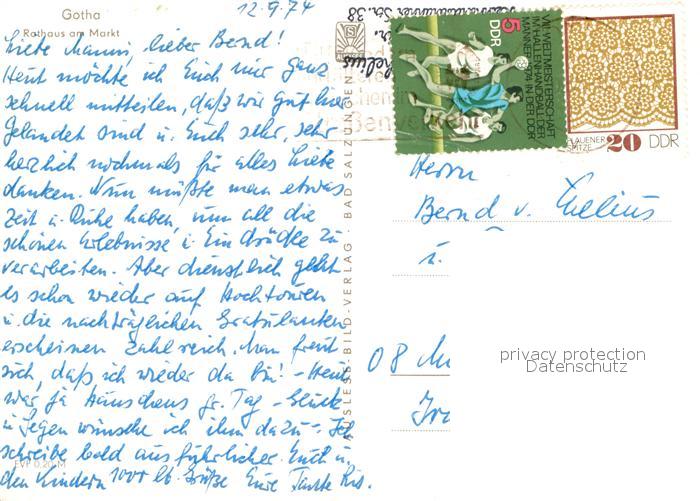 Gotha
Rathaus am Markt
12.9.74
Liebe Manni, lieber Bernd!
Heut möchte ich Euch nur ganz
schnell mitteilen, daß wir gut hier
gelandet sind u. Euch sehr, sehr
herzlich nochmals für alles Liebe
danken. Nun müßte man etwas
Zeit u. Ruhe haben, um all die
schönen Erlebnisse u. Eindrücke zu
verarbeiten. Aber dienstlich geht
es schon wieder auf Hochtouren
u. die nachträglichen Gratulanten
erscheinen zahlreich. Man freut
sich, daß ich wieder da bin! - Heut
war ja Hänschens gr. Tag - Glück
u. Segen wünsche ich ihm dazu - Ich
schreibe bald ausführlicher. Euch u.
den Kindern 1000 lb. Grüße Eure Tante
EVP 0,20 M
AUSLESE-BILD-VERLAG BAD SALZUNGEN
Str. 38
5
DDR
VIII. WELTMEISTERSCHAFT
IM HALLENHANDBALL DER
MÄNNER 1974 IN DER DDR
PLAUENER
SPITZE 20 DDR
Herrn
Bernd v.
u.
08
privacy protection
Datenschutz